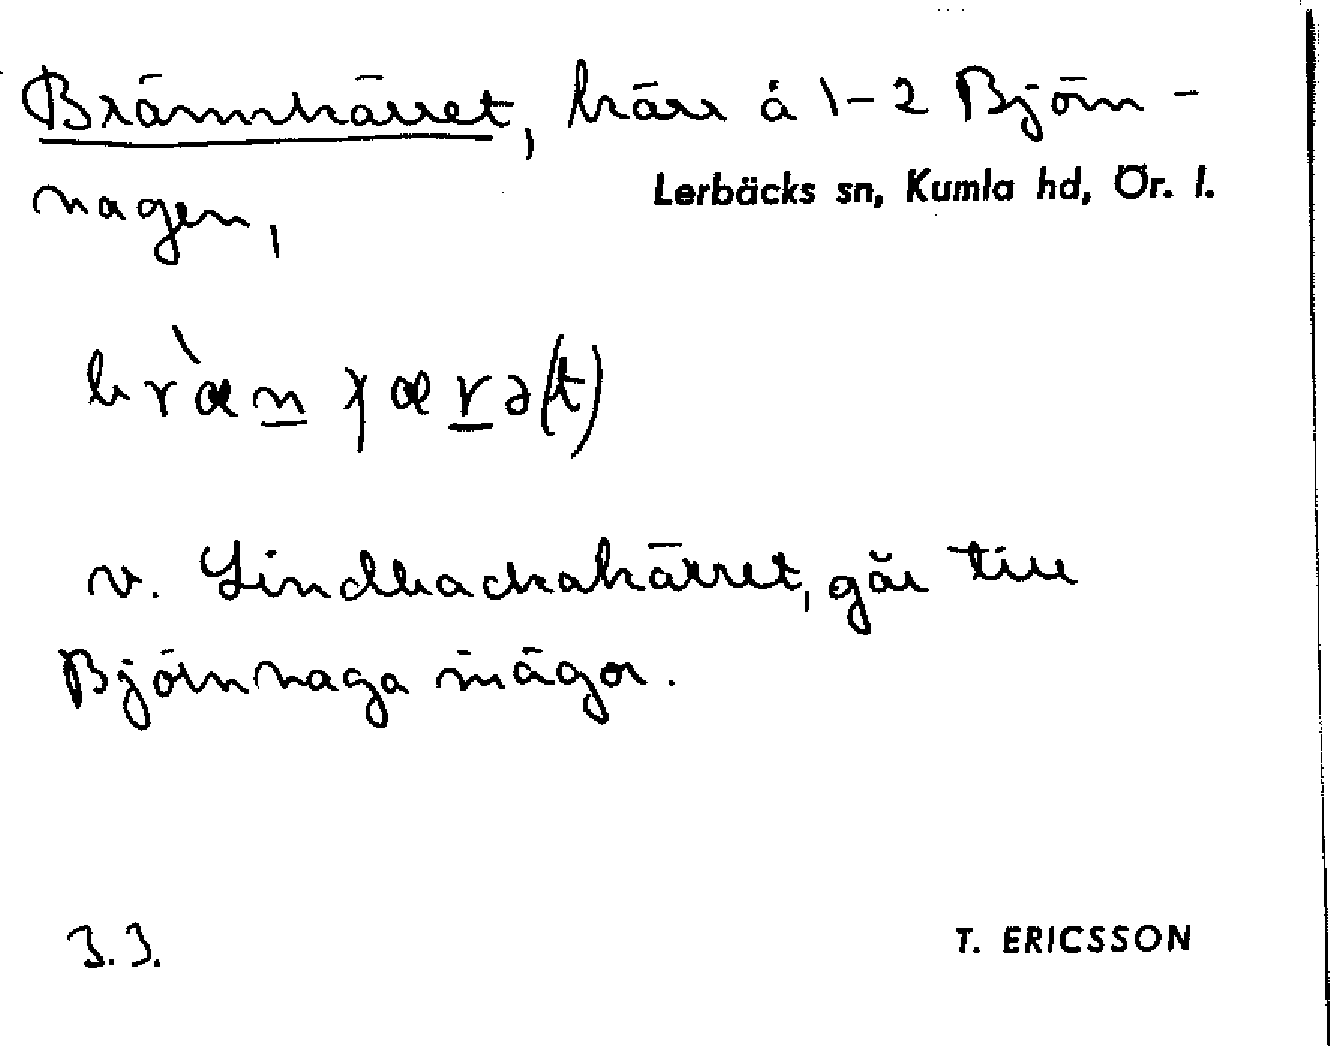 Brännkärret, kärr å 1-2 Björn-
Lerbäcks sn, Kumla hd, Ör. l.
hagen,
v. Lindbackakärret, går till
Björnhaga inägor.
3.3.
T. ERICSSON